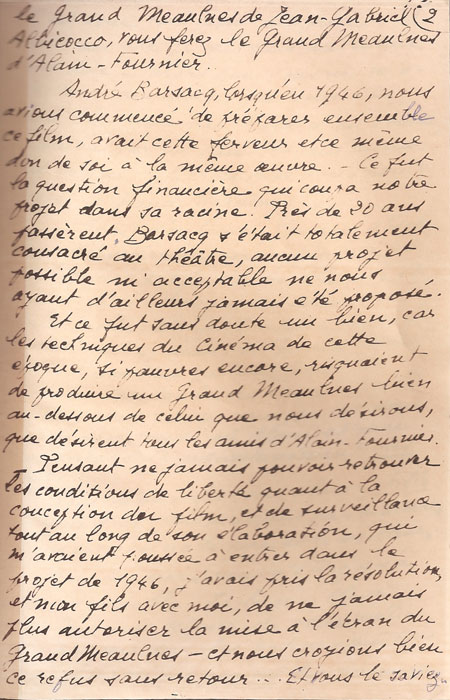 le Grand Meaulnes de Jean-Gabriel (2
Albicocco, vous ferez le Grand Meaulnes
d'Alain-Fournier..
André Barsacq, lorsqu'en 1946, nous
avions commencé de préparer ensemble
ce film, avait cette ferveur et ce même
don de soi à la même œuvre. - Ce fut
la question financière qui coupa notre
projet dans sa racine. Près de 20 ans
passèrent. Barsacq s'était totalement
consacré au théâtre, aucun projet
possible ni acceptable ne nous
ayant d'ailleurs jamais été proposé.
Et ce fut sans doute un bien, car
les techniques du Cinéma de cette
époque, si pauvres encore, risquaient
de produire un Grand Meaulnes bien
au-dessous de celui que nous désirons,
que désirent tous les amis d'Alain-Fournier.
- Pensant ne jamais pouvoir retrouver
les conditions de liberté quant à la
conception du film, et de surveillance
tout au long de son élaboration, qui
m'avaient poussée à entrer dans le
projet de 1946, j'avais pris la résolution,
et mon fils avec moi, de ne jamais
plus autoriser la mise à l'écran du
Grand Meaulnes - et nous croyions bien
ce refus sans retour... Et vous le saviez.